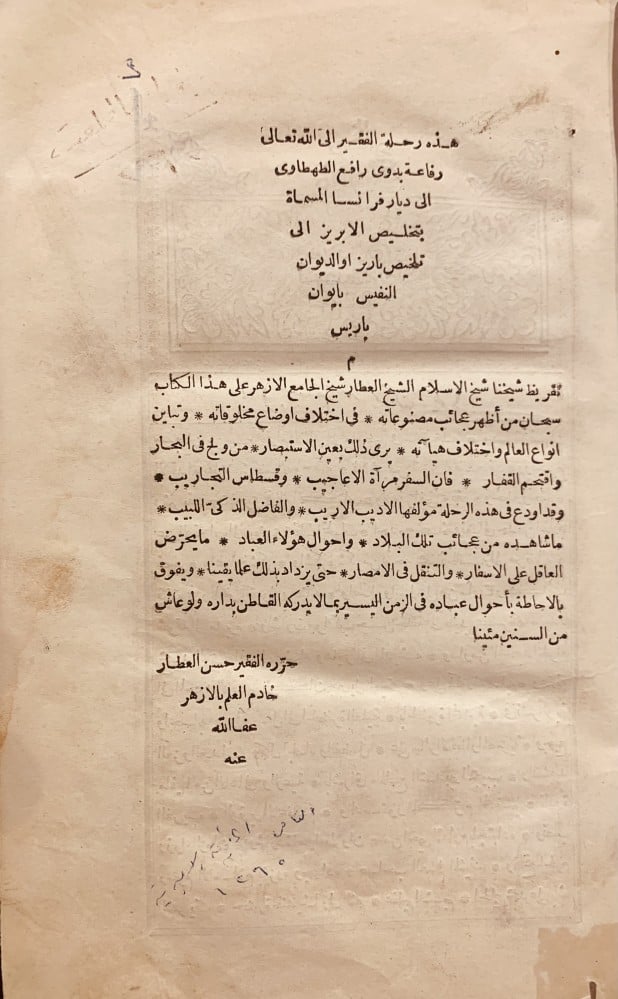 هذه رحلة الفقير الى الله تعالى
رفاعة بدوى رافع الطهطاوى
الى ديار فرانسا المسماة
بتخليص الابريز الى
تلخيص باريز اوالديوان
النفيس بايوان
باريس
م
تقريظ شيخنا شيخ الاسلام الشيخ العطار شيخ الجامع الازهر على هذا الكتاب
سبحان من أظهر عجائب مصنوعاته * فى اختلاف اوضاع مخلوقاته * وتباين
انواع العالم واختلاف هيآته * يرى ذلك بعين الاستبصار * من ولج فى البحار
واقتحم القفار * فان السفر مرآة الاعاجيب * وقسطاس التجاريب *
وقد اودع فى هذه الرحلة مؤلفها الاديب الاريب * والفاضل الذكىّ اللبيب *
ماشاهده من عجائب تلك البلاد * واحوال هؤلاء العباد * مايحرّض
العاقل على الاسفار * والتنقل فى الامصار * حتى يزداد بذلك علما يقينا * ويفوق
بالاحاطة بأحوال عباده فى الزمن اليسير بما لا يدركه القاطن بداره ولو عاش
من السنين مئينا
حرّره الفقير حسن العطار
خادم العلم بالازهر
عفا الله
عنه
١٢٦٥